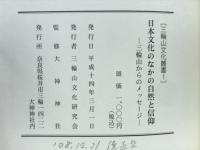 〔三輪山文化叢書Ⅰ〕
日本文化のなかの自然と信仰
―三輪山からのメッセージ―
頒価 一、〇〇〇円
(税込)
発行日 平成十四年三月一日
発行者 三輪山文化研究会
監修 大神神社
発行所 奈良県桜井市三輪一四二二
大神神社内